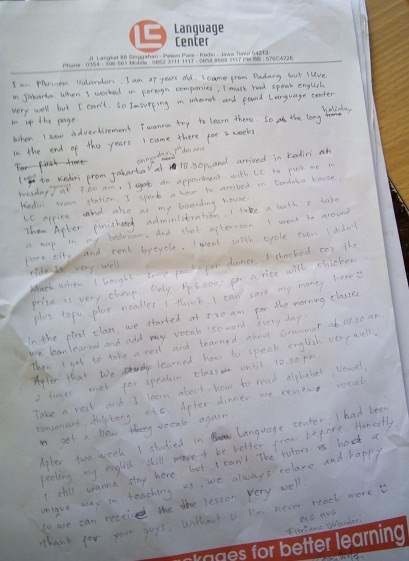 LC Language Center
Jl. Langkat 88 Singgahan - Pelem Pare - Kediri - Jawa Timur 64213
I am 27 years old. I came from Padang but I live
in Jakarta. When I worked in foreign companies, I must had speak english
very well but I can't. So I surfing in internet and found Language center
in up the page.
When I saw advertisement I wanna try to learn there. So at the long holiday
in the end of this years I came there for 2 weeks.
For first time
I go to Kediri from Jakarta at 18.30pm and arrived in Kediri at
tuesday, at 7.00 am, I got an appointment with LC to push me in
Kediri train station. I spend a hour to arrived in
LC office and also at my boarding house.
Then After finished administration, I take a bath & take
a nap in my bedroom. And that afternoon I went to around
Pare city and rent bycycle. I went with cycle even I didn't
ride is very well.
when I bought some food for dinner. I shocked cos the
prize is very cheap. Only Rp 6.000, for a rice with chicken
plus tofu, plus noodles I think I can save my money here
In the first class, we started at 5.30 am for the morning classes
we learned and add my vocab 150 word every day.
Then I get to take a rest and learned about Grammar at 10.00 am
After that We learned how to speak english very well.
2 times met for speakin class until 12.30 pm
Take a rest and I learn about how to read alphabet vowel,
consonant, dhiptong etc. After dinner we
get a new vocab again
After two week I studied in Language center. I had been
feeling my english skill to be better from before. Honestly
I still wanna stay here but I can't. The tutors is had a
unique way in teaching us, we always relaxe and happy
so we can receive the lesson very well.
thank for your guys, without u I'm never reach more
packages for better learning